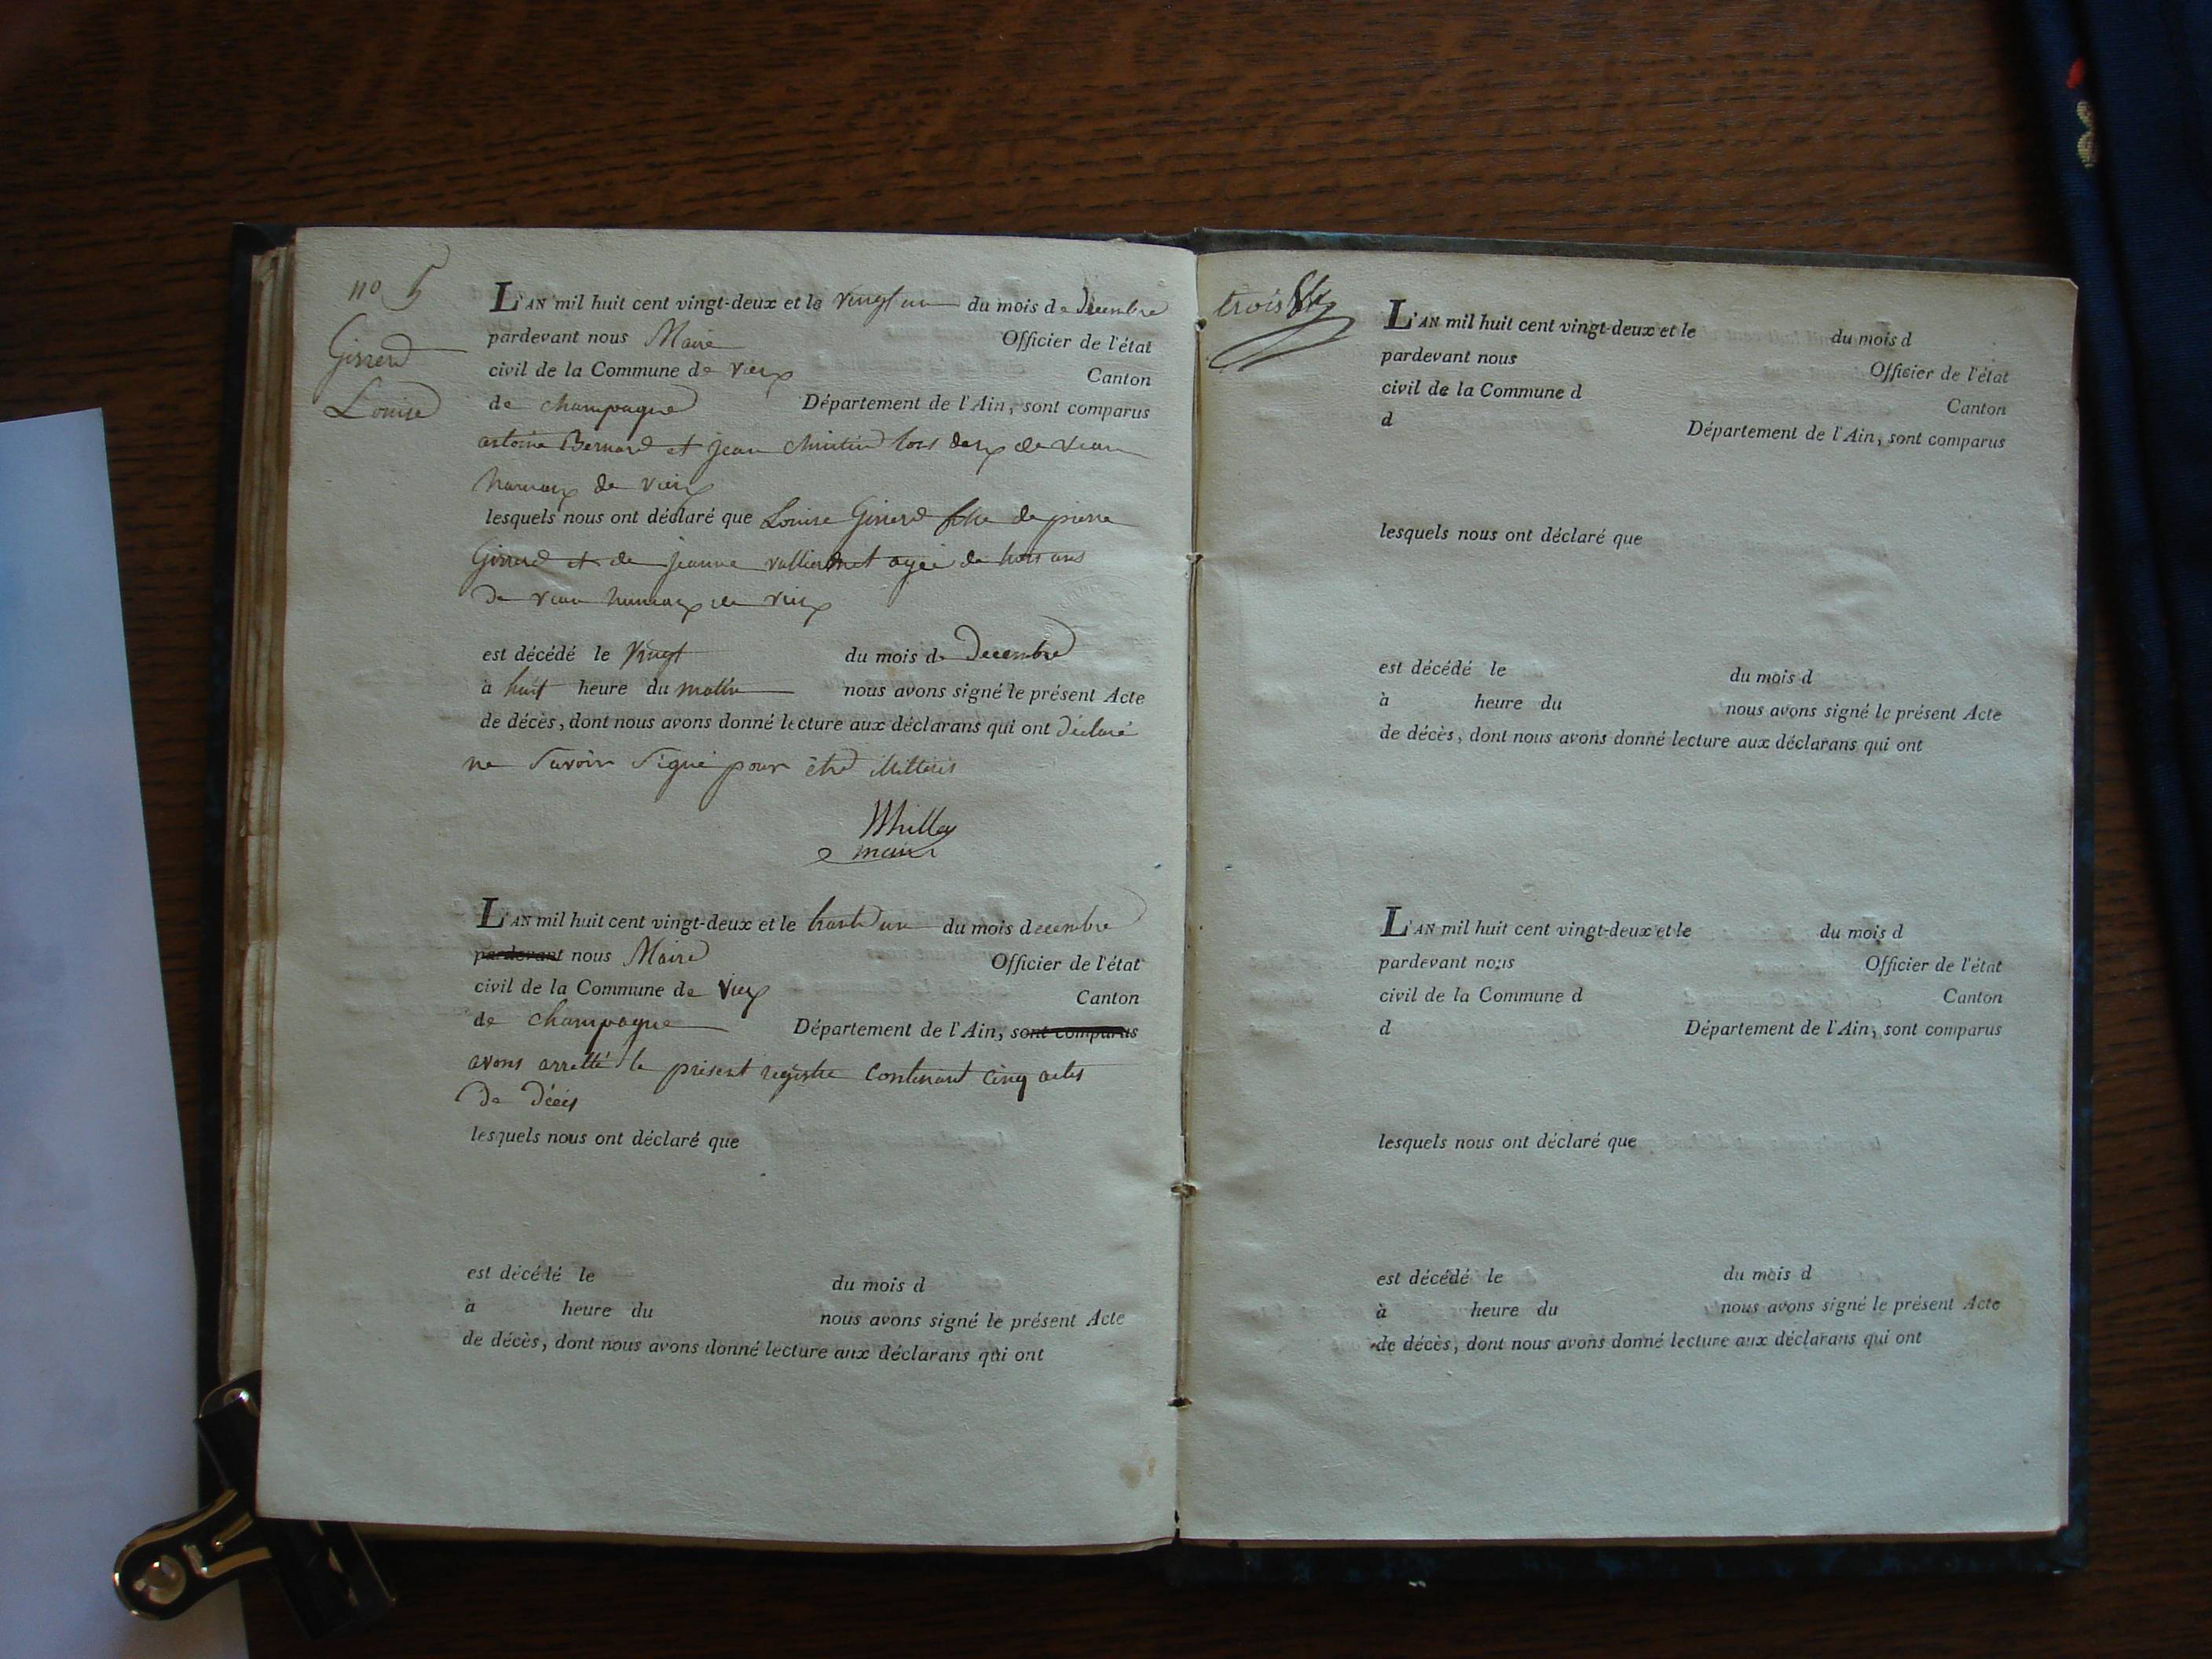 no 5
Girrerd
Louise
L'AN mil huit cent vingt-deux et le vingt un du mois de decembre
pardevant nous Maire Officier de l'état
civil de la Commune de vieux Canton
de champagne Département de l'Ain, sont comparus
antoine Bernard et jean Christin tous deux de vean
hameaux de vieux
lesquels nous ont déclaré que Louise Girrerd fille de pierre
Girrerd et de jeanne agée de trois ans
de vean hameaux de vieux
est décédé le vingt du mois de Decembre
à huit heure du matin nous avons signé le présent Acte
de décès, dont nous avons donné lecture aux déclarans qui ont déclaré
ne savoir signé pour être illitteris
maire
L'AN mil huit cent vingt-deux et le trante un du mois decembre
pardevant nous Maire Officier de l'état
civil de la Commune de vieux Canton
de champagne Département de l'Ain, sont comparus
avons arretté le présent registre contenant cinq actes
de décès
lesquels nous ont déclaré que
est décédé le du mois d
à heure du nous avons signé le présent Acte
de décès, dont nous avons donné lecture aux déclarans qui ont
trois
L'AN mil huit cent vingt-deux et le du mois d
pardevant nous Officier de l'état
civil de la Commune d Canton
d Département de l'Ain, sont comparus
lesquels nous ont déclaré que
est décédé le du mois d
à heure du nous avons signé le présent Acte
de décès, dont nous avons donné lecture aux déclarans qui ont
L'AN mil huit cent vingt-deux et le du mois d
pardevant nous Officier de l'état
civil de la Commune d Canton
d Département de l'Ain, sont comparus
lesquels nous ont déclaré que
est décédé le du mois d
à heure du nous avons signé le présent Acte
de décès, dont nous avons donné lecture aux déclarans qui ont